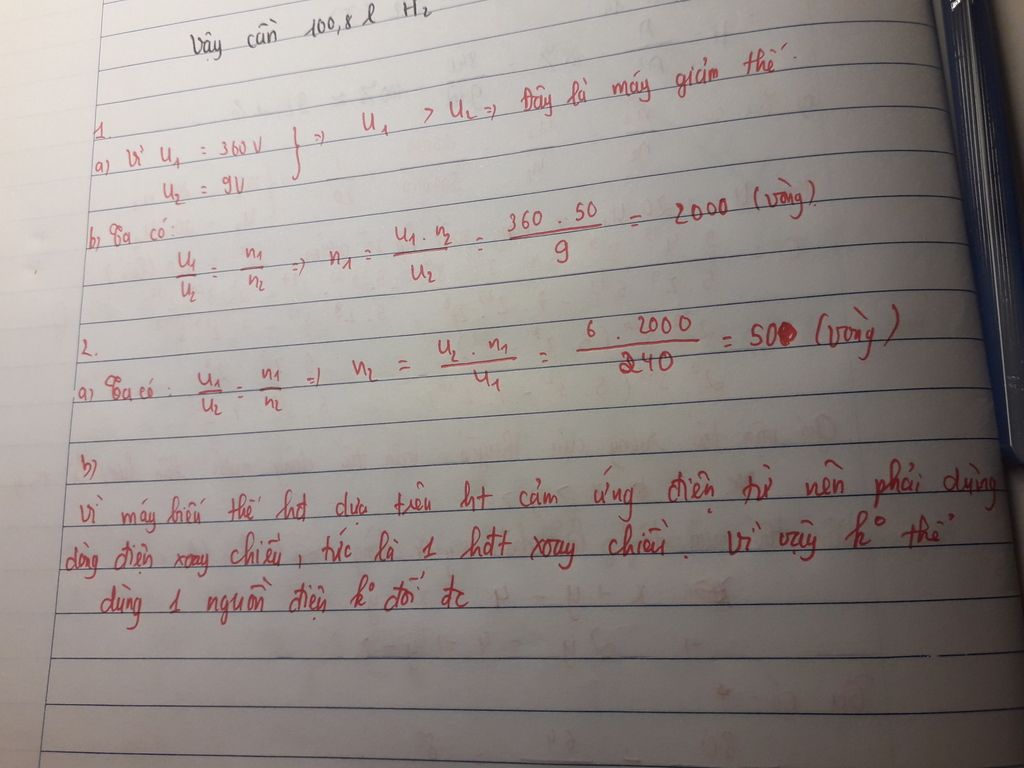 Vậy cần 100,8 l H₂
1.
a) Vì U₁ = 360V
U₂ = 9V } => U₁ > U₂ => Đây là máy giảm thế.
b, Ta có:
U₁/U₂ = n₁/n₂ => n₁ = U₁.n₂/U₂ = 360.50/9 = 2000 (vòng)
2.
a) Ta có: U₁/U₂ = n₁/n₂ => n₂ = U₂.n₁/U₁ = 6.2000/240 = 50 (vòng)
b)
Vì máy biến thế hđ dựa trên ht cảm ứng điện từ nên phải dùng
dòng điện xoay chiều, tức là 1 hđt xoay chiều. Vì vậy k° thể
dùng 1 nguồn điện k° đổi đc